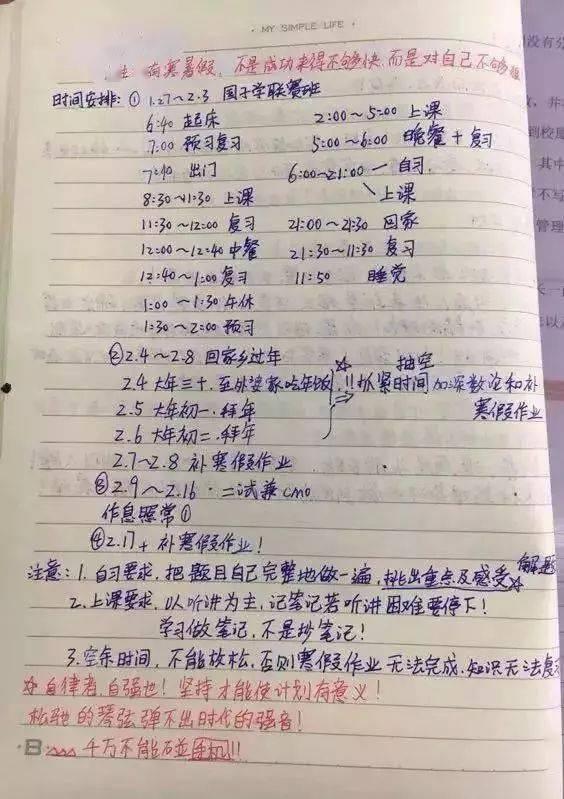 · MY SIMPLE LIFE ·
注: 有寒暑假, 不是成功来得不够快, 而是对自己不够狠
时间安排: ① 1.27~2.3 国子学联赛班
6:40 起床 2:00~5:00 上课
7:00 预习复习 5:00~6:00 晚餐+复习
7:40 出门 6:00~21:00 一自习
8:30~11:30 上课 上课
11:30~12:00 复习 21:00~21:30 回家
12:00~12:40 中餐 21:30~11:30 复习
12:40~1:00 复习 11:50 睡觉
1:00~1:30 午休
1:30~2:00 预习
②2.4~2.8 回家乡过年
2.4 大年三十. 至外婆家吃年饭. !! 抓紧时间 抽空 加深数论和补寒假作业
2.5 大年初一. 拜年
2.6 大年初二. 拜年
2.7~2.8 补寒假作业
③2.9~2.16. 二试兼cmo
作息照常①
④2.17+ 补寒假作业!
注意: 1. 自习要求, 把题目自己完整地做一遍, 挑出重点及解题感受☆
2. 上课要求, 以听讲为主, 记笔记若听讲困难要停下!
学习做笔记, 不是抄笔记!
3. 空余时间, 不能放松, 否则寒假作业无法完成, 知识无法复
☆自律者, 自强也! 坚持才能使计划有意义!
松弛的琴弦弹不出时代的强音!
·B: 千万不能碰手机!!!
没有分
到校
其中
不写
管理